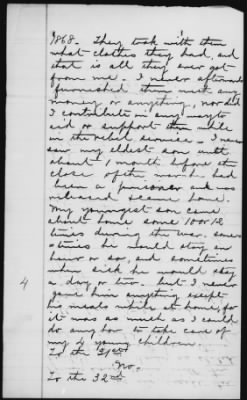 1868. They took with them
what clothes they had, and
that is all they ever got
from me. I never afterward
furnished them with any
money or anything, nor did
I contribute in any way to
aid or support them while
in the rebel service. I never
saw my eldest son until
about 1 month before the
close of the war he had
been a prisoner and was
released & came home.
My youngest son came
about home some 10 or 12
times during the war, some
=times he would stay an
hour or so, and sometimes
when sick he would stay
a day or two. but I never
4
gave him anything except
his meals while at home, for
it was as much as I could
do anyhow to take care of
my 4 young children.
To the 31st
No.
To the 32nd